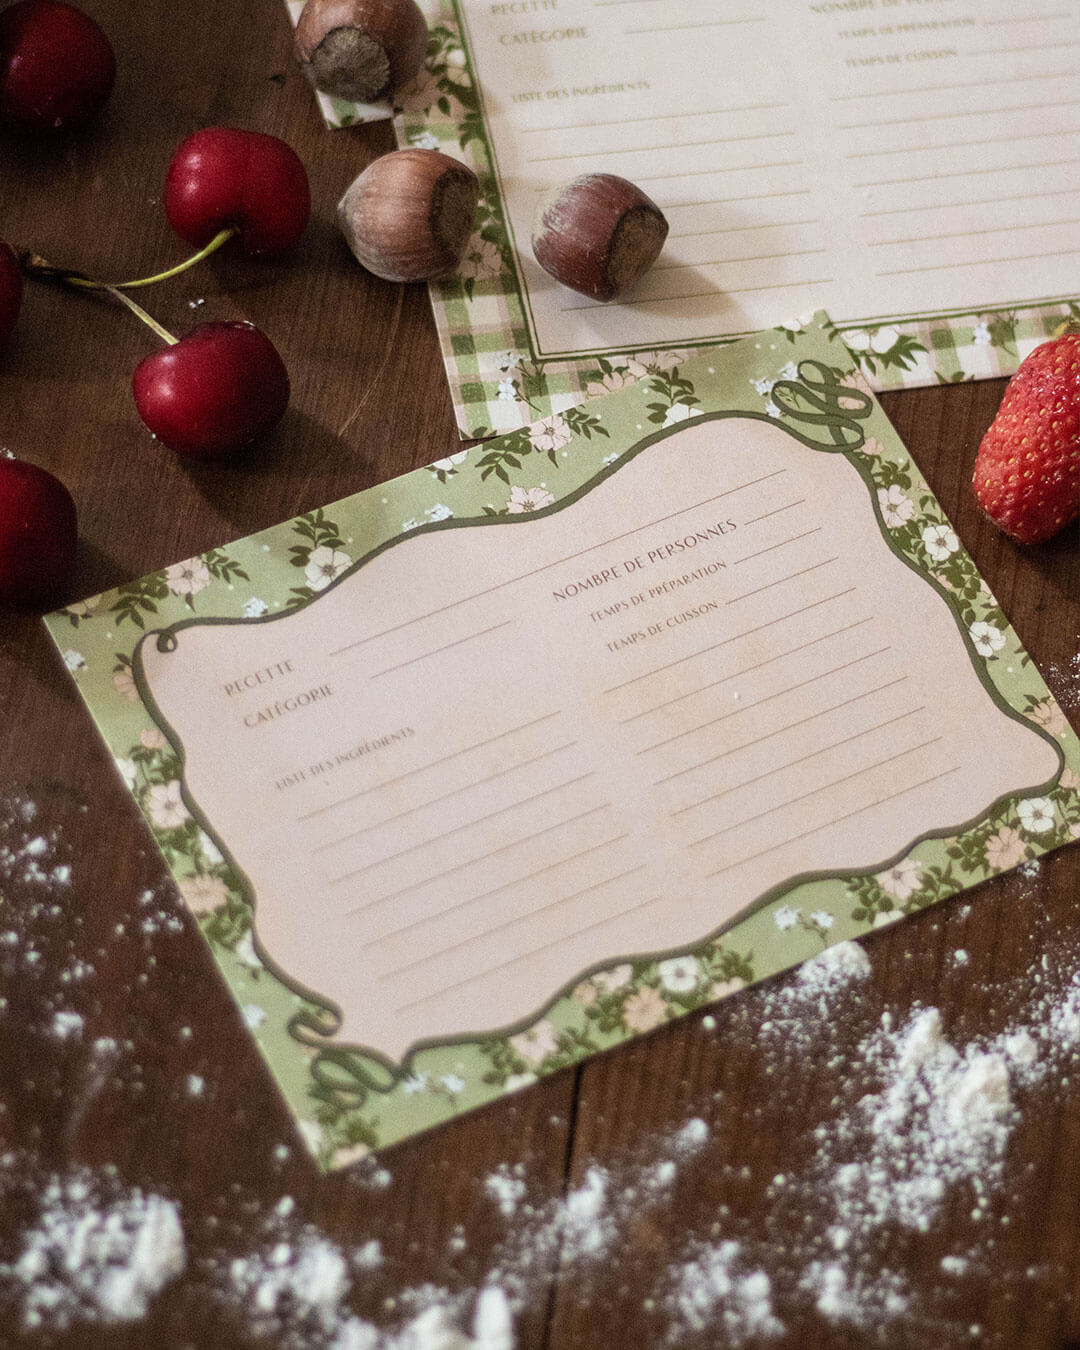 RECETTE
CATÉGORIE
LISTE DES INGRÉDIENTS
NOMBRE DE PERSONNES
TEMPS DE PRÉPARATION
TEMPS DE CUISSON
RECETTE
CATÉGORIE
LISTE DES INGRÉDIENTS
NOMBRE DE PERSONNES
TEMPS DE PRÉPARATION
TEMPS DE CUISSON